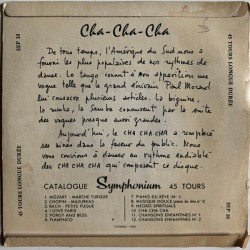 Cha-Cha-Cha
De tous temps, l'Amérique du Sud nous a
fourni les plus populaires de nos rythmes de
danse. Le tango connut à son apparition une
vogue telle que le grand écrivain Paul Morand
lui consacra plusieurs articles. La biguine,
le mambo, la Samba connurent par la suite
des vogues presque aussi grandes.
Aujourd'hui, le CHA CHA CHA a remplacé
ses aînés dans la faveur du public. Nous
vous convions à danser au rythme endiablé
des CHA CHA CHA qui composent ce disque.
CATALOGUE Symphonium 45 TOURS
1 MOZART MARCHE TURQUE
2 CHOPIN MAZURKAS
3 BACH PETITE FUGUE
4 I LOVE PARIS
5 PORGY AND BESS
6 FLAMENCO
7 PIANO ED RETO Nº 1
8 MUSIQUE DOUCE
9 NEGRO SPIRITUALS
10 CHA CHA CHA
11 CHANSONS ENFANTINES Nº 1
12 CHANSONS ENFANTINES Nº 2
SEP 10
45 TOURS LONGUE DURÉE
45 TOURS LONGUE DURÉE
SEP 10